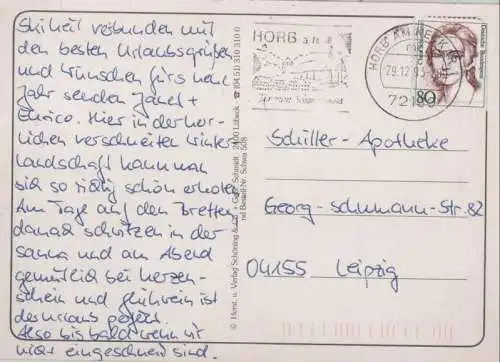 Ski heil verbunden mit
den besten Urlaubsgrüßen
und Wünschen fürs neue
Jahr senden Janet +
Enrico. Hier in der herr-
lichen verschneiten Winter
landschaft kann man
sich so richtig schön erholen
Am Tage auf den Brettern
danach schwitzen in der
Sauna und am Abend
gemütlich bei Kerzen-
schein und Glühwein ist
der Urlaub perfekt.
Also bis bald wenn wir
nicht eingeschneit sind.
© Herst. u. Verlag Schöning & Co. + Gebr. Schmidt · 24101 Lübeck · ☎ (0451) 310 310 0
Bestell-Nr. Schwa 508
HORB a. N.
HORB AM NECKAR
29.12.93
72160
80
Deutsche Bundespost
Schiller-Apotheke
Georg-Schumann-Str. 82
04155 Leipzig